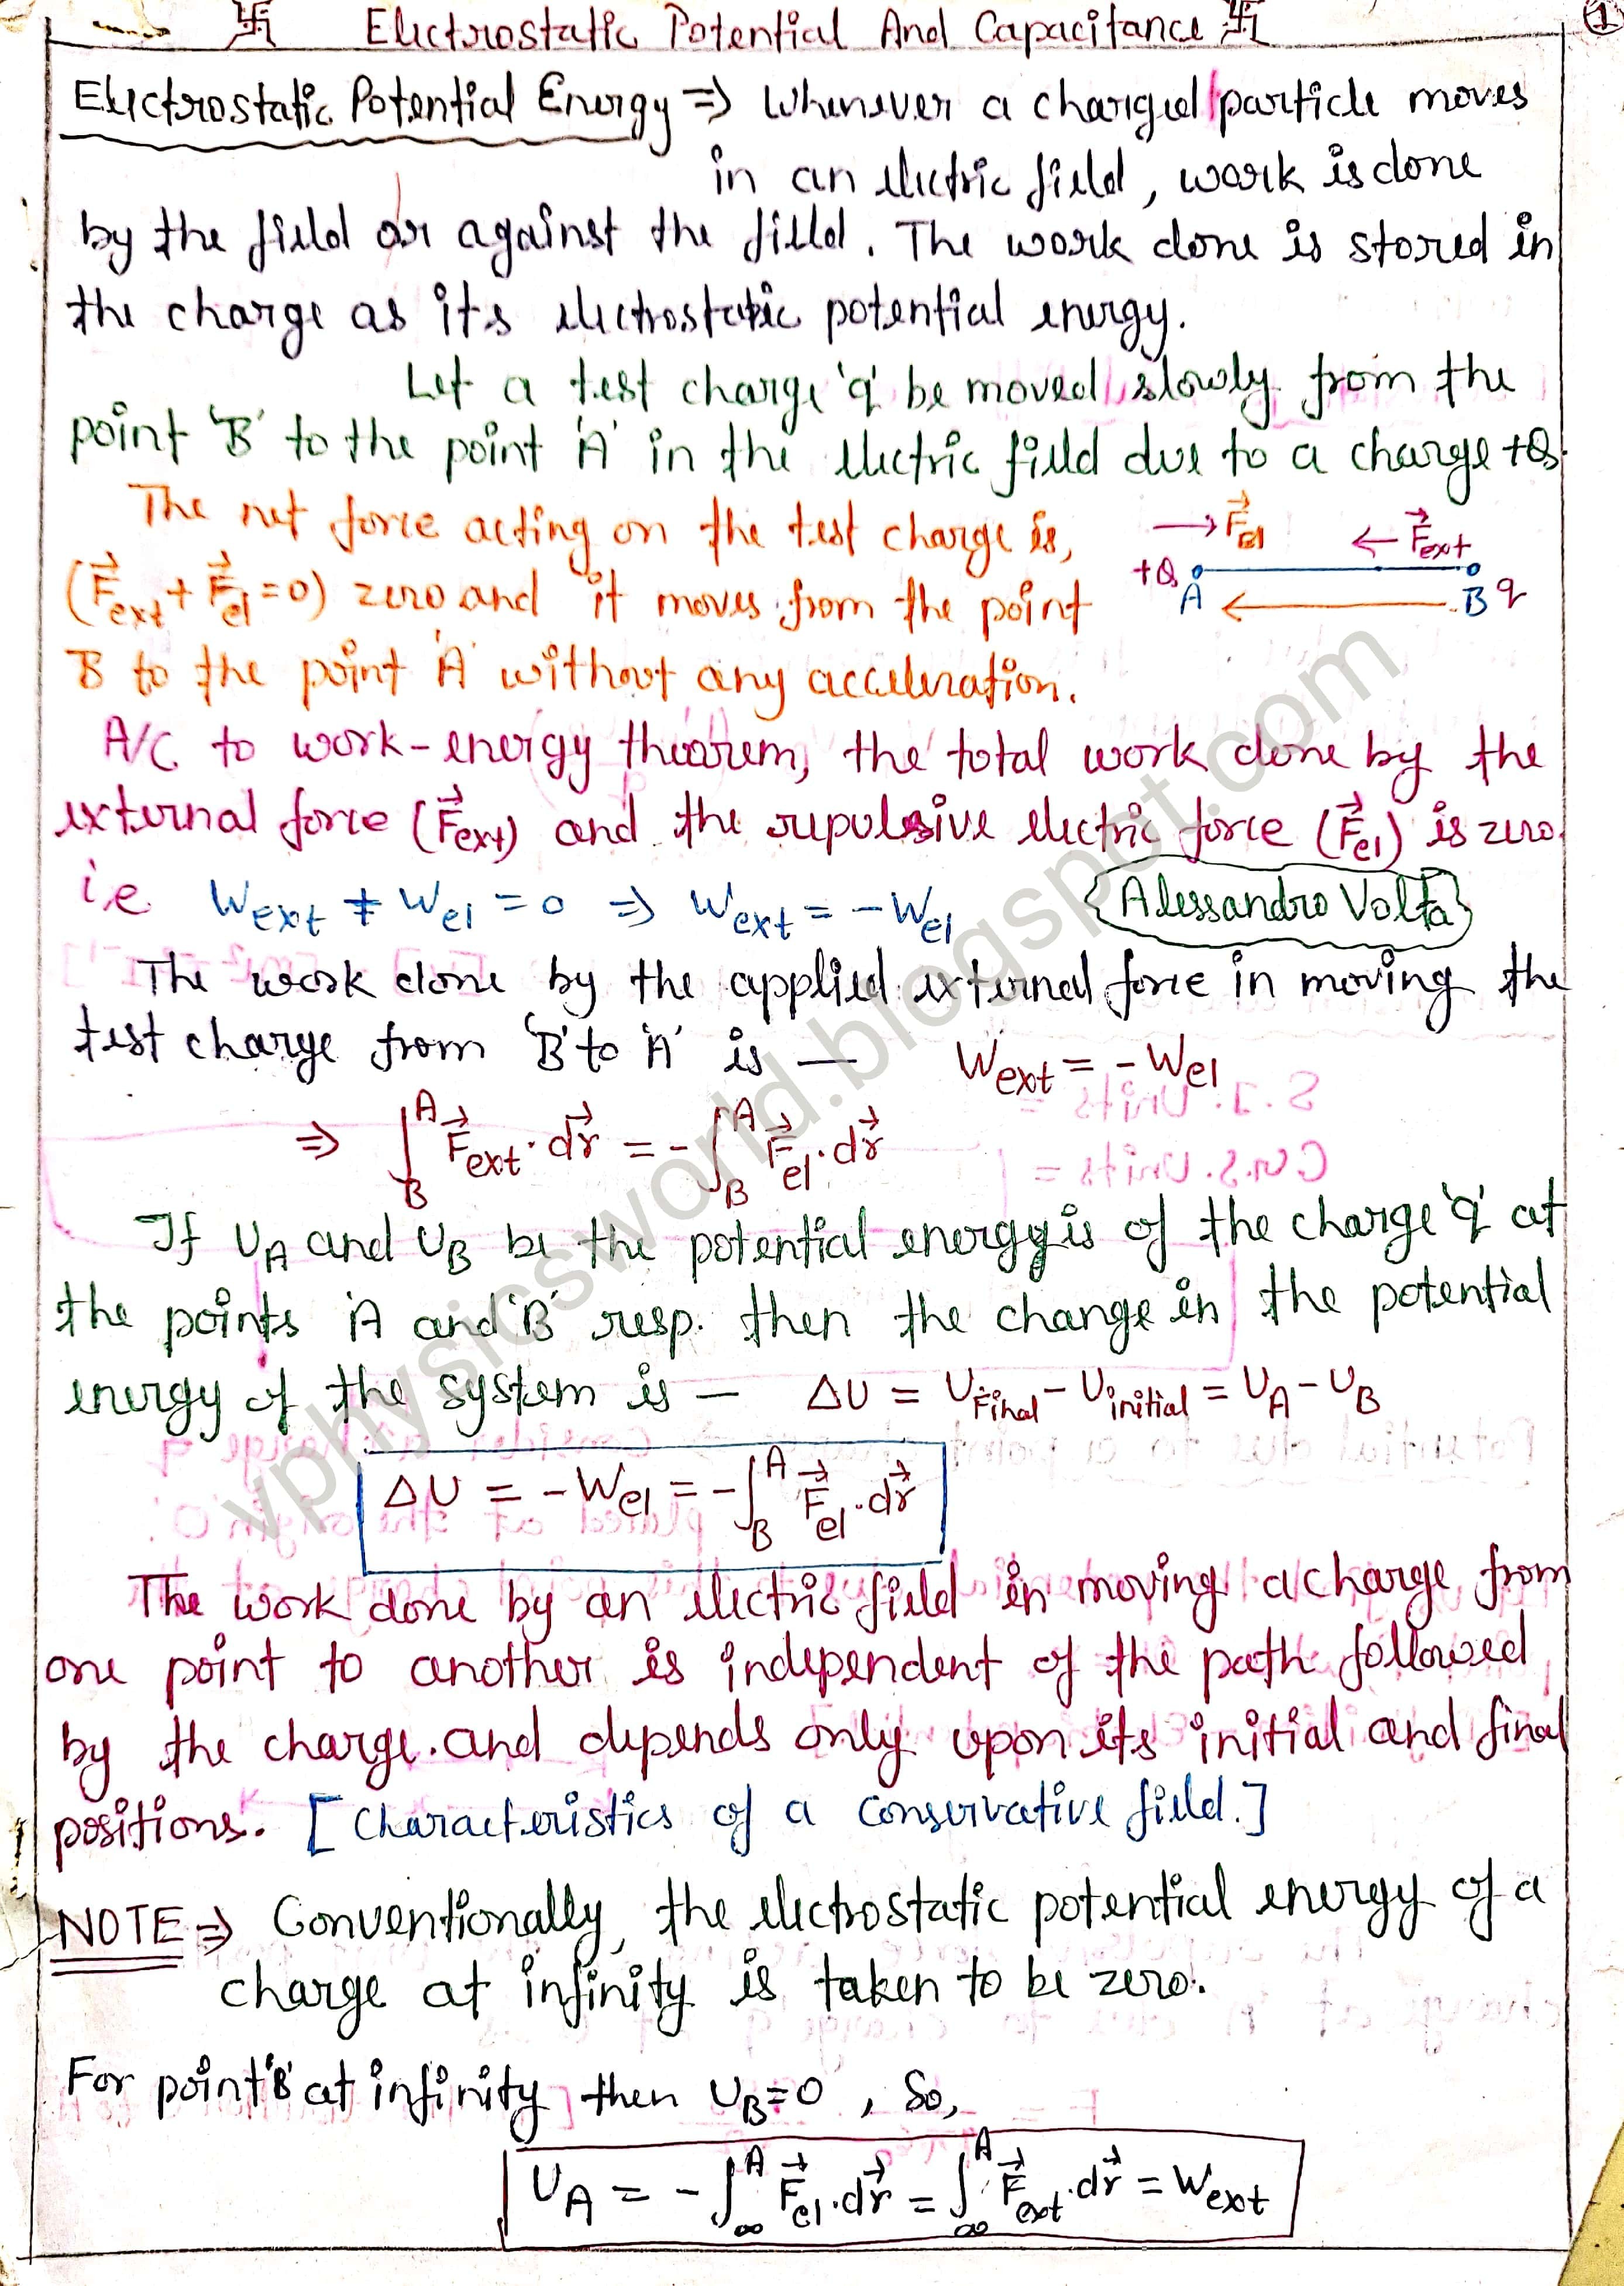 卐 Electrostatic Potential And Capacitance 卐 ①
Electrostatic Potential Energy ⇒ Whenever a charged particle moves
in an electric field, work is done
by the field or against the field. The work done is stored in
the charge as its electrostatic potential energy.
Let a test charge 'q' be moved slowly from the
point 'B' to the point 'A' in the electric field due to a charge +Q.
The net force acting on the test charge is,
(F⃗ext + F⃗el = 0) zero and it moves from the point
B to the point 'A' without any acceleration.
→ F⃗el ← F⃗ext
+Q A B q
A/C to work-energy theorem, the total work done by the
external force (F⃗ext) and the repulsive electric force (F⃗el) is zero.
i.e. Wext + Wel = 0 ⇒ Wext = -Wel {Alessandro Volta}
The work done by the applied external force in moving the
test charge from 'B' to 'A' is — Wext = -Wel
⇒ ∫_B^A F⃗ext · dr⃗ = -∫_B^A F⃗el · dr⃗
If UA and UB be the potential energyis of the charge 'q' at
the points 'A' and 'B' resp. then the change in the potential
energy of the system is — ΔU = UFinal - Uinitial = UA - UB
ΔU = -Wel = -∫_B^A F⃗el · dr⃗
The work done by an electric field in moving a charge from
one point to another is independent of the path followed
by the charge. and depends only upon its initial and final
positions. [Characteristics of a conservative field.]
NOTE ⇒ Conventionally, the electrostatic potential energy of a
charge at infinity is taken to be zero.
For point 'B' at infinity then UB = 0 , So,
UA = -∫_∞^A F⃗el · dr⃗ = ∫_∞^A F⃗ext · dr⃗ = Wext
vphysicsworld.blogspot.com